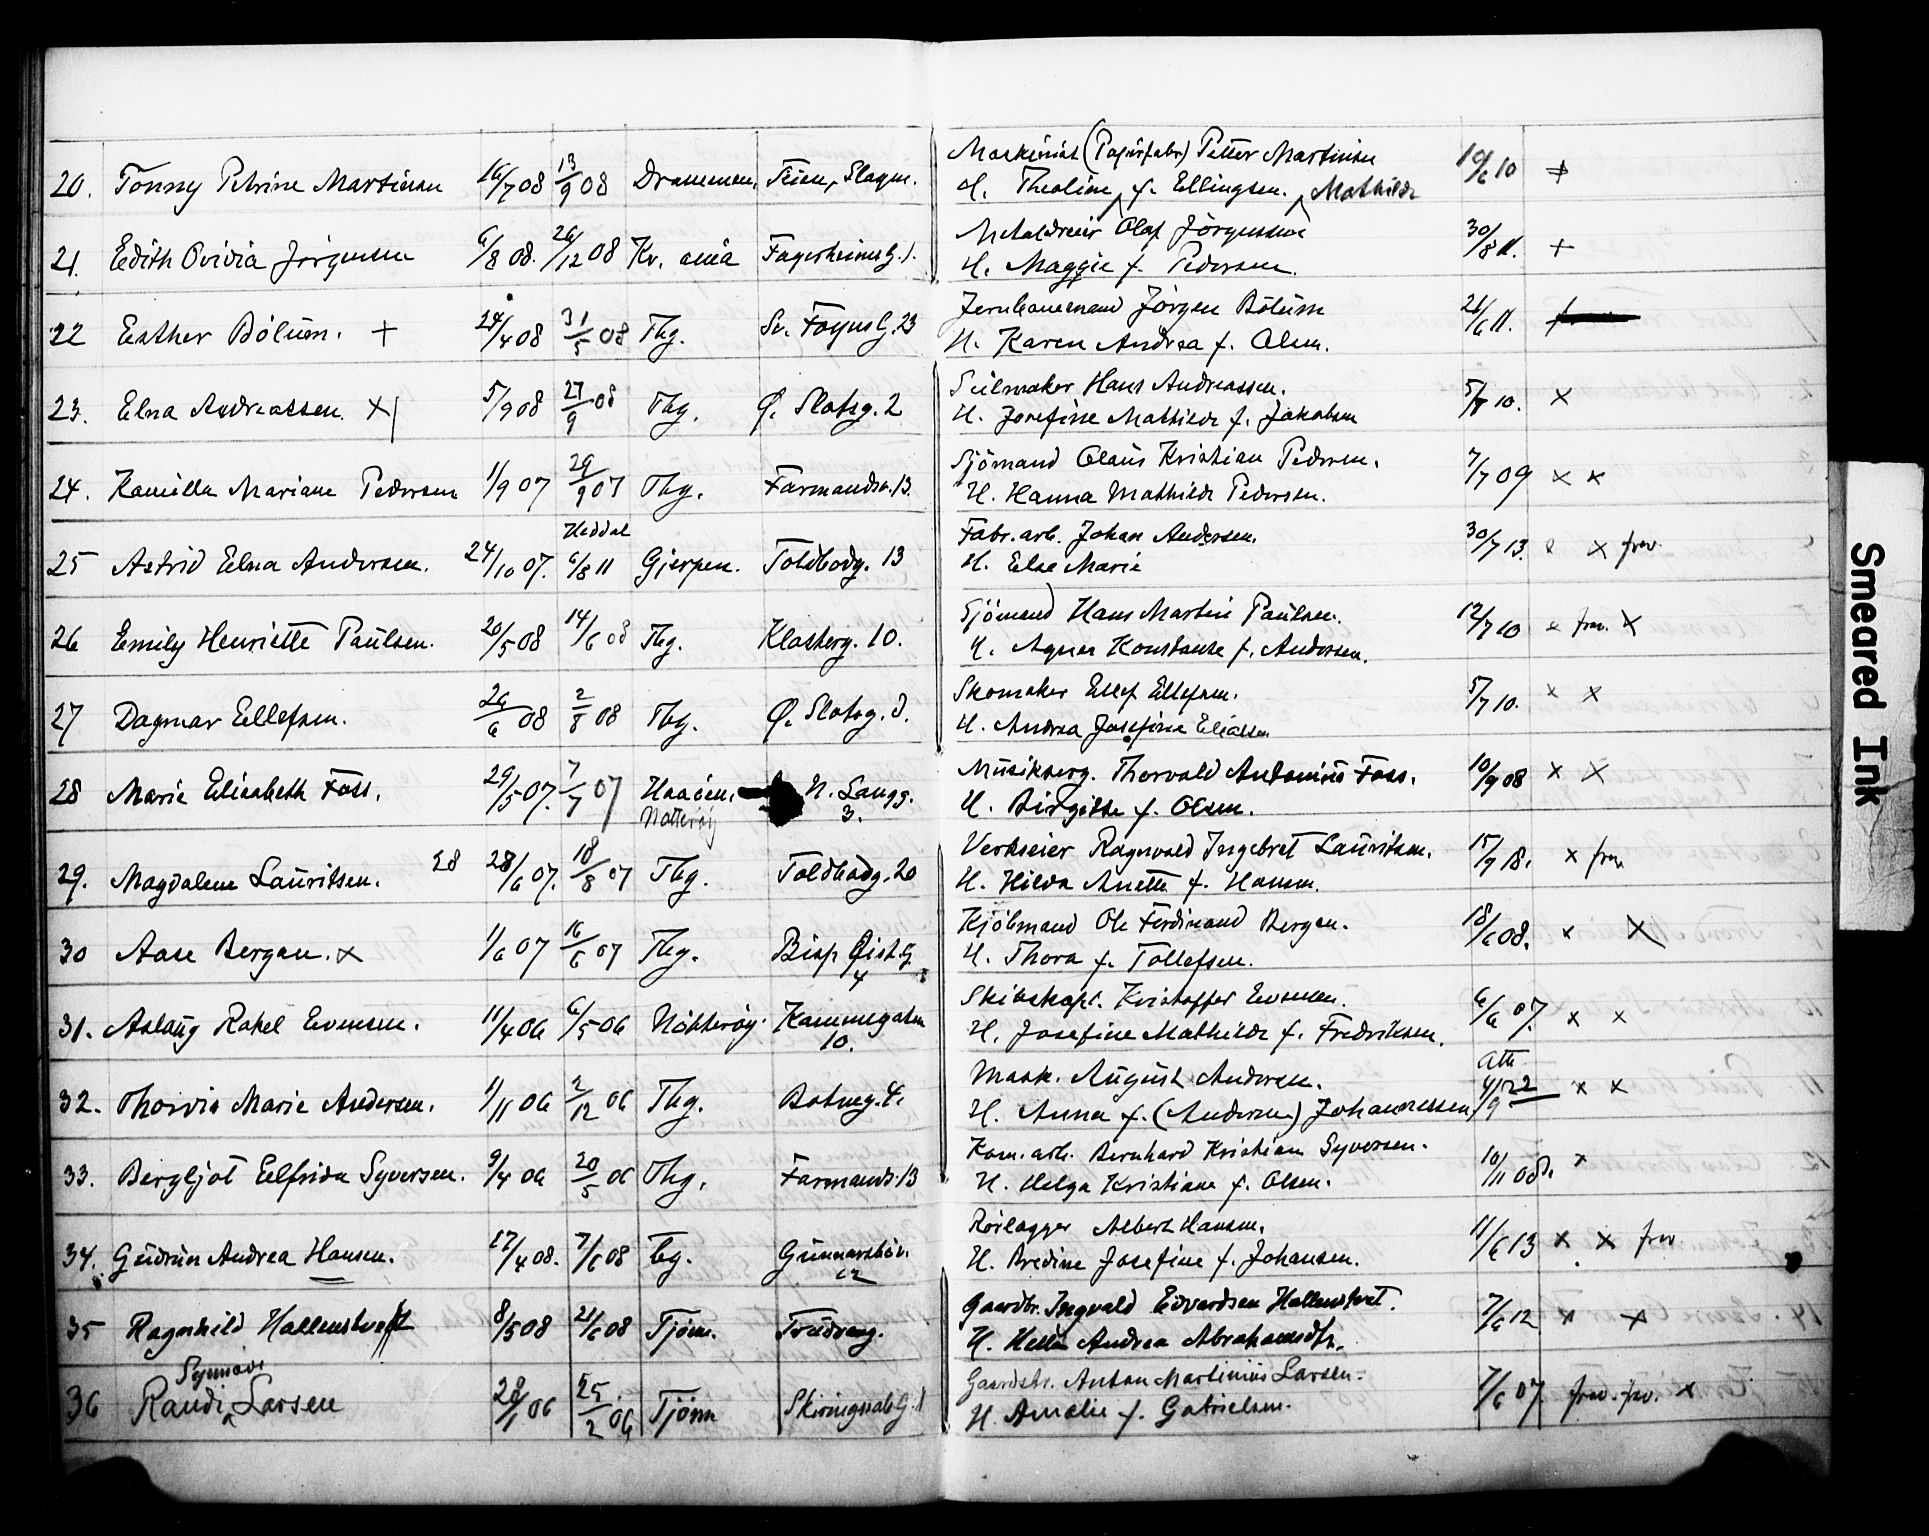 20. Tonny Petrine Martinsen 16/7 08 13/9 08 Drammen. Teien, Slagen. Maskinist (Papirfabr) Petter Martinsen 10/6 10 +
H. Theoline f. Ellingsen. Mathilde
21. Edith Ovidia Jørgensen 6/8 08. 26/12 08 Kr. ania Fagerheimsg. 1. Metaldreier Olaf Jørgensen 30/8 11. +
H. Maggie f. Pedersen.
22 Esther Bølum. + 24/4 08 31/5 08 Tbg. Sv. Foynsg. 23 Jernbanemand Jørgen Bølum 21/6 11.
H. Karen Andrea f. Olsen.
23. Elna Andreassen. x 5/9 08 27/9 08 Tbg. Ø. Slotsg. 2 Seilmaker Hans Andreassen. 5/8 10. x
H. Josefine Mathilde f. Jakobsen
24. Kamilla Mariane Pedersen 1/9 07 29/9 07 Tbg. Farmandsv. 13. Sjömand Olaus Kristian Pedersen. 7/7 09 x x
H. Hanna Mathilde Pedersen.
Heddal
25 Astrid Elna Andersen. 24/10 07. 6/8 11 Gjerpen. Toldbodg. 13 Fabr. arb. Johan Andersen. 30/7 13. x x frav.
H. Else Marie
26 Emily Henriette Paulsen. 20/5 08 14/6 08 Tbg. Klosterg. 10. Sjömand Hans Martin Paulsen. 12/7 10 x frav. x
H. Agnes Konstanse f. Andersen.
27 Dagmar Ellefsen. 29/6 08 2/8 08 Tbg. Ø. Slotsg. 8. Skomaker Ellef Ellefsen. 5/7 10. x x
H. Andrea Josefine Eliassen
28 Marie Elisabeth Foss. 29/5 07. 7/7 07 Haaöen. N. Langg. Musikserg. Thorvald Antonius Foss. 10/9 08 x x
Nøtterøy 3. H. Birgitte f. Olsen.
29. Magdalene Lauritsen. 28 28/6 07. 18/8 07 Tbg. Toldbodg. 20 Verkseier Ragnvald Ingebret Lauritsen. 15/9 18. x frav
H. Hilda Anette f. Hansen.
30 Aase Bergan. x 1/6 07 16/6 07 Tbg. Bisp Øistg. Kjöbmand Ole Ferdinand Bergan. 18/6 08. x x
4 H. Thora f. Tollefsen.
31. Aslaug Rakel Evensen. 11/4 06 6/5 06 Nøtterøy. Kammegaten Skibskapt. Kristoffer Evensen. 6/6 07. x x
10. H. Josefine Mathilde f. Fredriksen.
Att.
32. Thorvia Marie Andersen. 1/11 06 2/12 06 Tbg. Botneg. 4. Mask. August Andersen. 4/9 22 x x
H. Anna f. (Andersen) Johannessen
33. Bergljot Elfrida Syversen. 9/4 06 20/5 06 Tbg. Farmands. 13 Kom. arb. Bernhard Kristian Syversen. 10/11 08. x
H. Helga Kristiane f. Olsen.
34. Gudrun Andrea Hansen. 17/4 08. 7/6 08 Tbg. Gunnarsböv. Rörlægger Albert Hansen. 11/6 13 x x frav
12 H. Bredine Josefine f. Johansen.
35 Ragnhild Hallenstvedt 8/5 08 21/6 08 Tjöme. Trudvang. Gaardbr. Ingvald Edvardsen Hallenstvet. 7/6 12 x x
H. Helle Andrea Abrahamsdtr.
Synnöve
36 Randi Larsen 28/1 06 25/2 06 Tjöme Skiringssalg. 1 Gaardstr. Anton Martinius Larsen. 7/6 07 frav. frav. x
H. Amalie f. Gabrielsen.
Smeared Ink